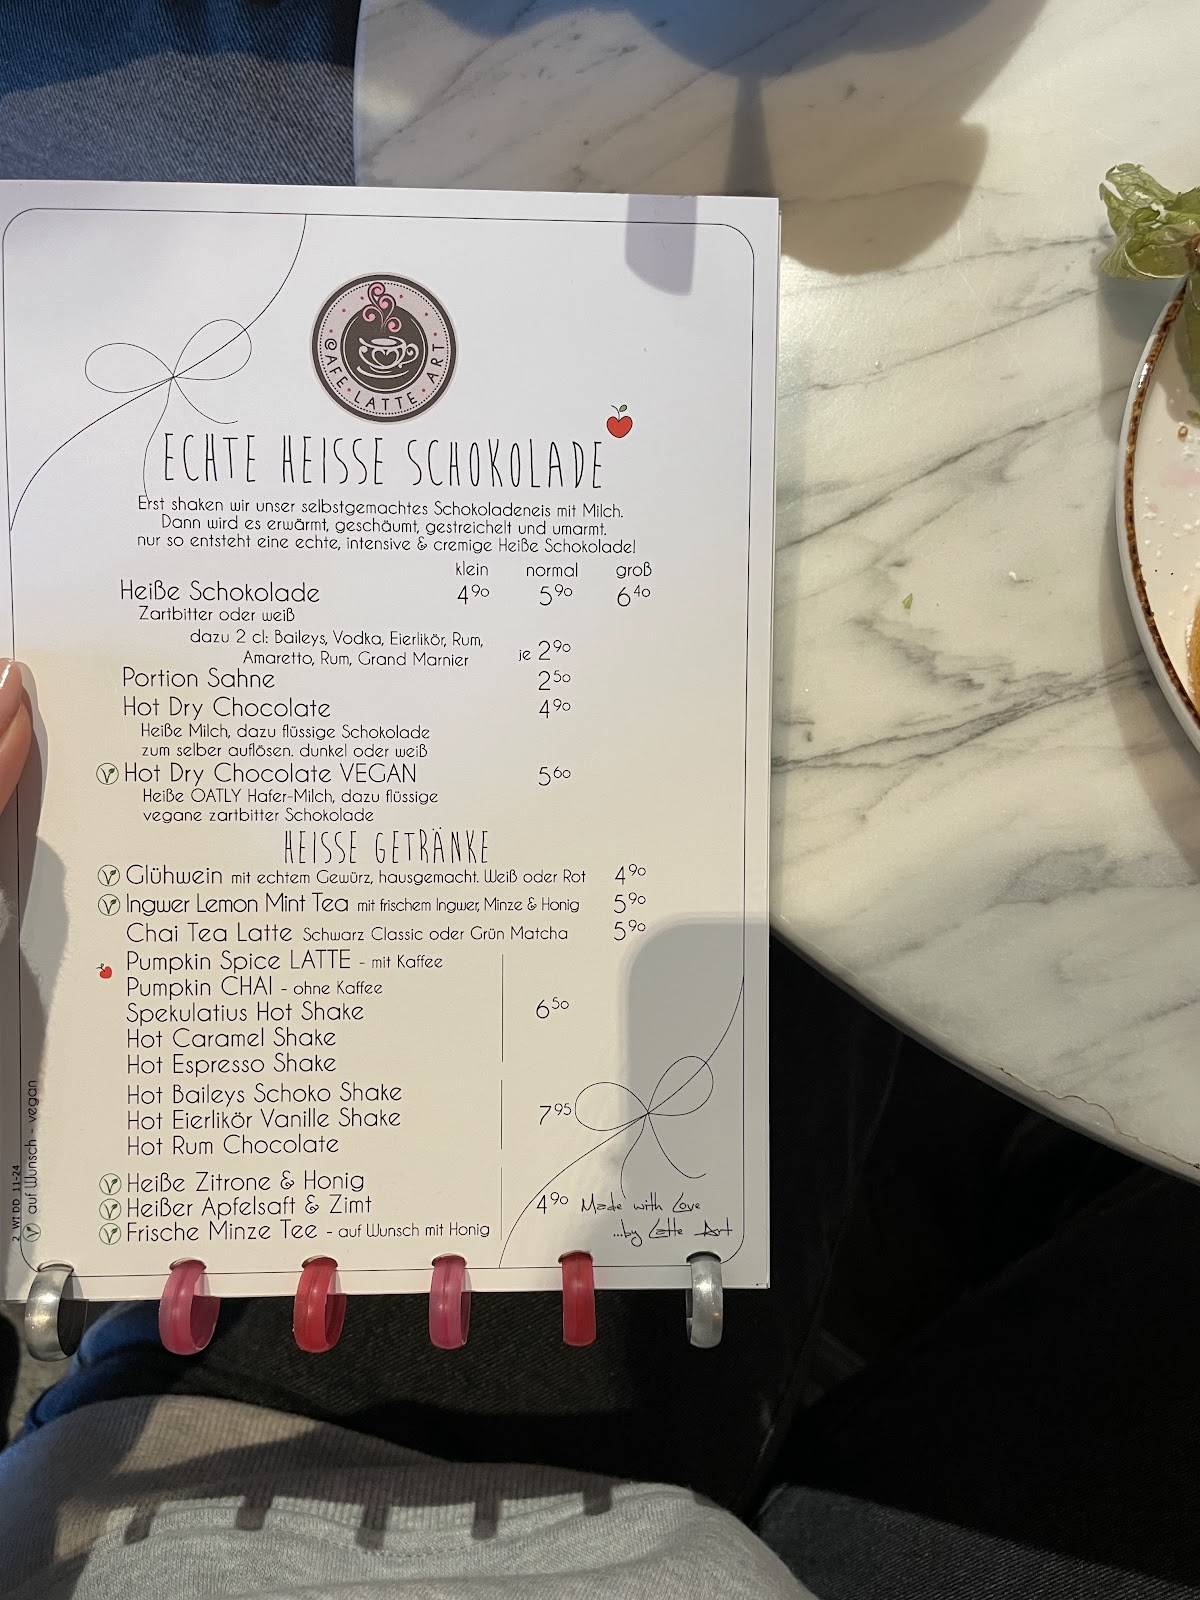 @AFE · LATTE · ART
ECHTE HEISSE SCHOKOLADE
Erst shaken wir unser selbstgemachtes Schokoladeneis mit Milch.
Dann wird es erwärmt, geschäumt, gestreichelt und umarmt.
nur so entsteht eine echte, intensive & cremige Heiße Schokolade!
klein normal groß
Heiße Schokolade 4⁹⁰ 5⁹⁰ 6⁴⁰
Zartbitter oder weiß
dazu 2 cl: Baileys, Vodka, Eierlikör, Rum,
Amaretto, Rum, Grand Marnier je 2⁹⁰
Portion Sahne 2⁵⁰
Hot Dry Chocolate 4⁹⁰
Heiße Milch, dazu flüssige Schokolade
zum selber auflösen. dunkel oder weiß
V Hot Dry Chocolate VEGAN 5⁶⁰
Heiße OATLY Hafer-Milch, dazu flüssige
vegane zartbitter Schokolade
HEISSE GETRÄNKE
V Glühwein mit echtem Gewürz, hausgemacht. Weiß oder Rot 4⁹⁰
V Ingwer Lemon Mint Tea mit frischem Ingwer, Minze & Honig 5⁹⁰
Chai Tea Latte Schwarz Classic oder Grün Matcha 5⁹⁰
Pumpkin Spice LATTE - mit Kaffee
Pumpkin CHAI - ohne Kaffee
Spekulatius Hot Shake 6⁵⁰
Hot Caramel Shake
Hot Espresso Shake
Hot Baileys Schoko Shake
Hot Eierlikör Vanille Shake 7⁹⁵
Hot Rum Chocolate
V Heiße Zitrone & Honig
V Heißer Apfelsaft & Zimt 4⁹⁰
V Frische Minze Tee - auf Wunsch mit Honig
Made with Love
...by Latte Art
V auf Wunsch - vegan
2 WI DD 11-24